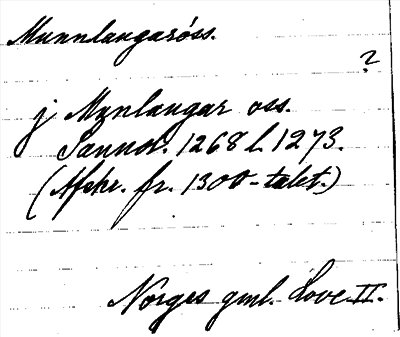 Munnlangaróss.
?
j Mynlangar oss.
Sannds. 1268 l. 1273.
(Afskr. fr. 1300-talet.)
Norges gml. Love II.